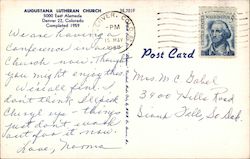 AUGUSTANA LUTHERAN CHURCH
5000 East Alameda
Denver 22, Colorado
Completed 1959
We are having a
conference in this
Church now. Thought
you might enjoy this.
We're all fine. I
don't think I'll pick
Cheryl up - things
just don't work
out for it now.
Love, Norma
DENVER, COLO.
PM
15 MAY
Post Card
Mrs. McGabel
3900 Hills Road
Sioux Falls, So. Dak.